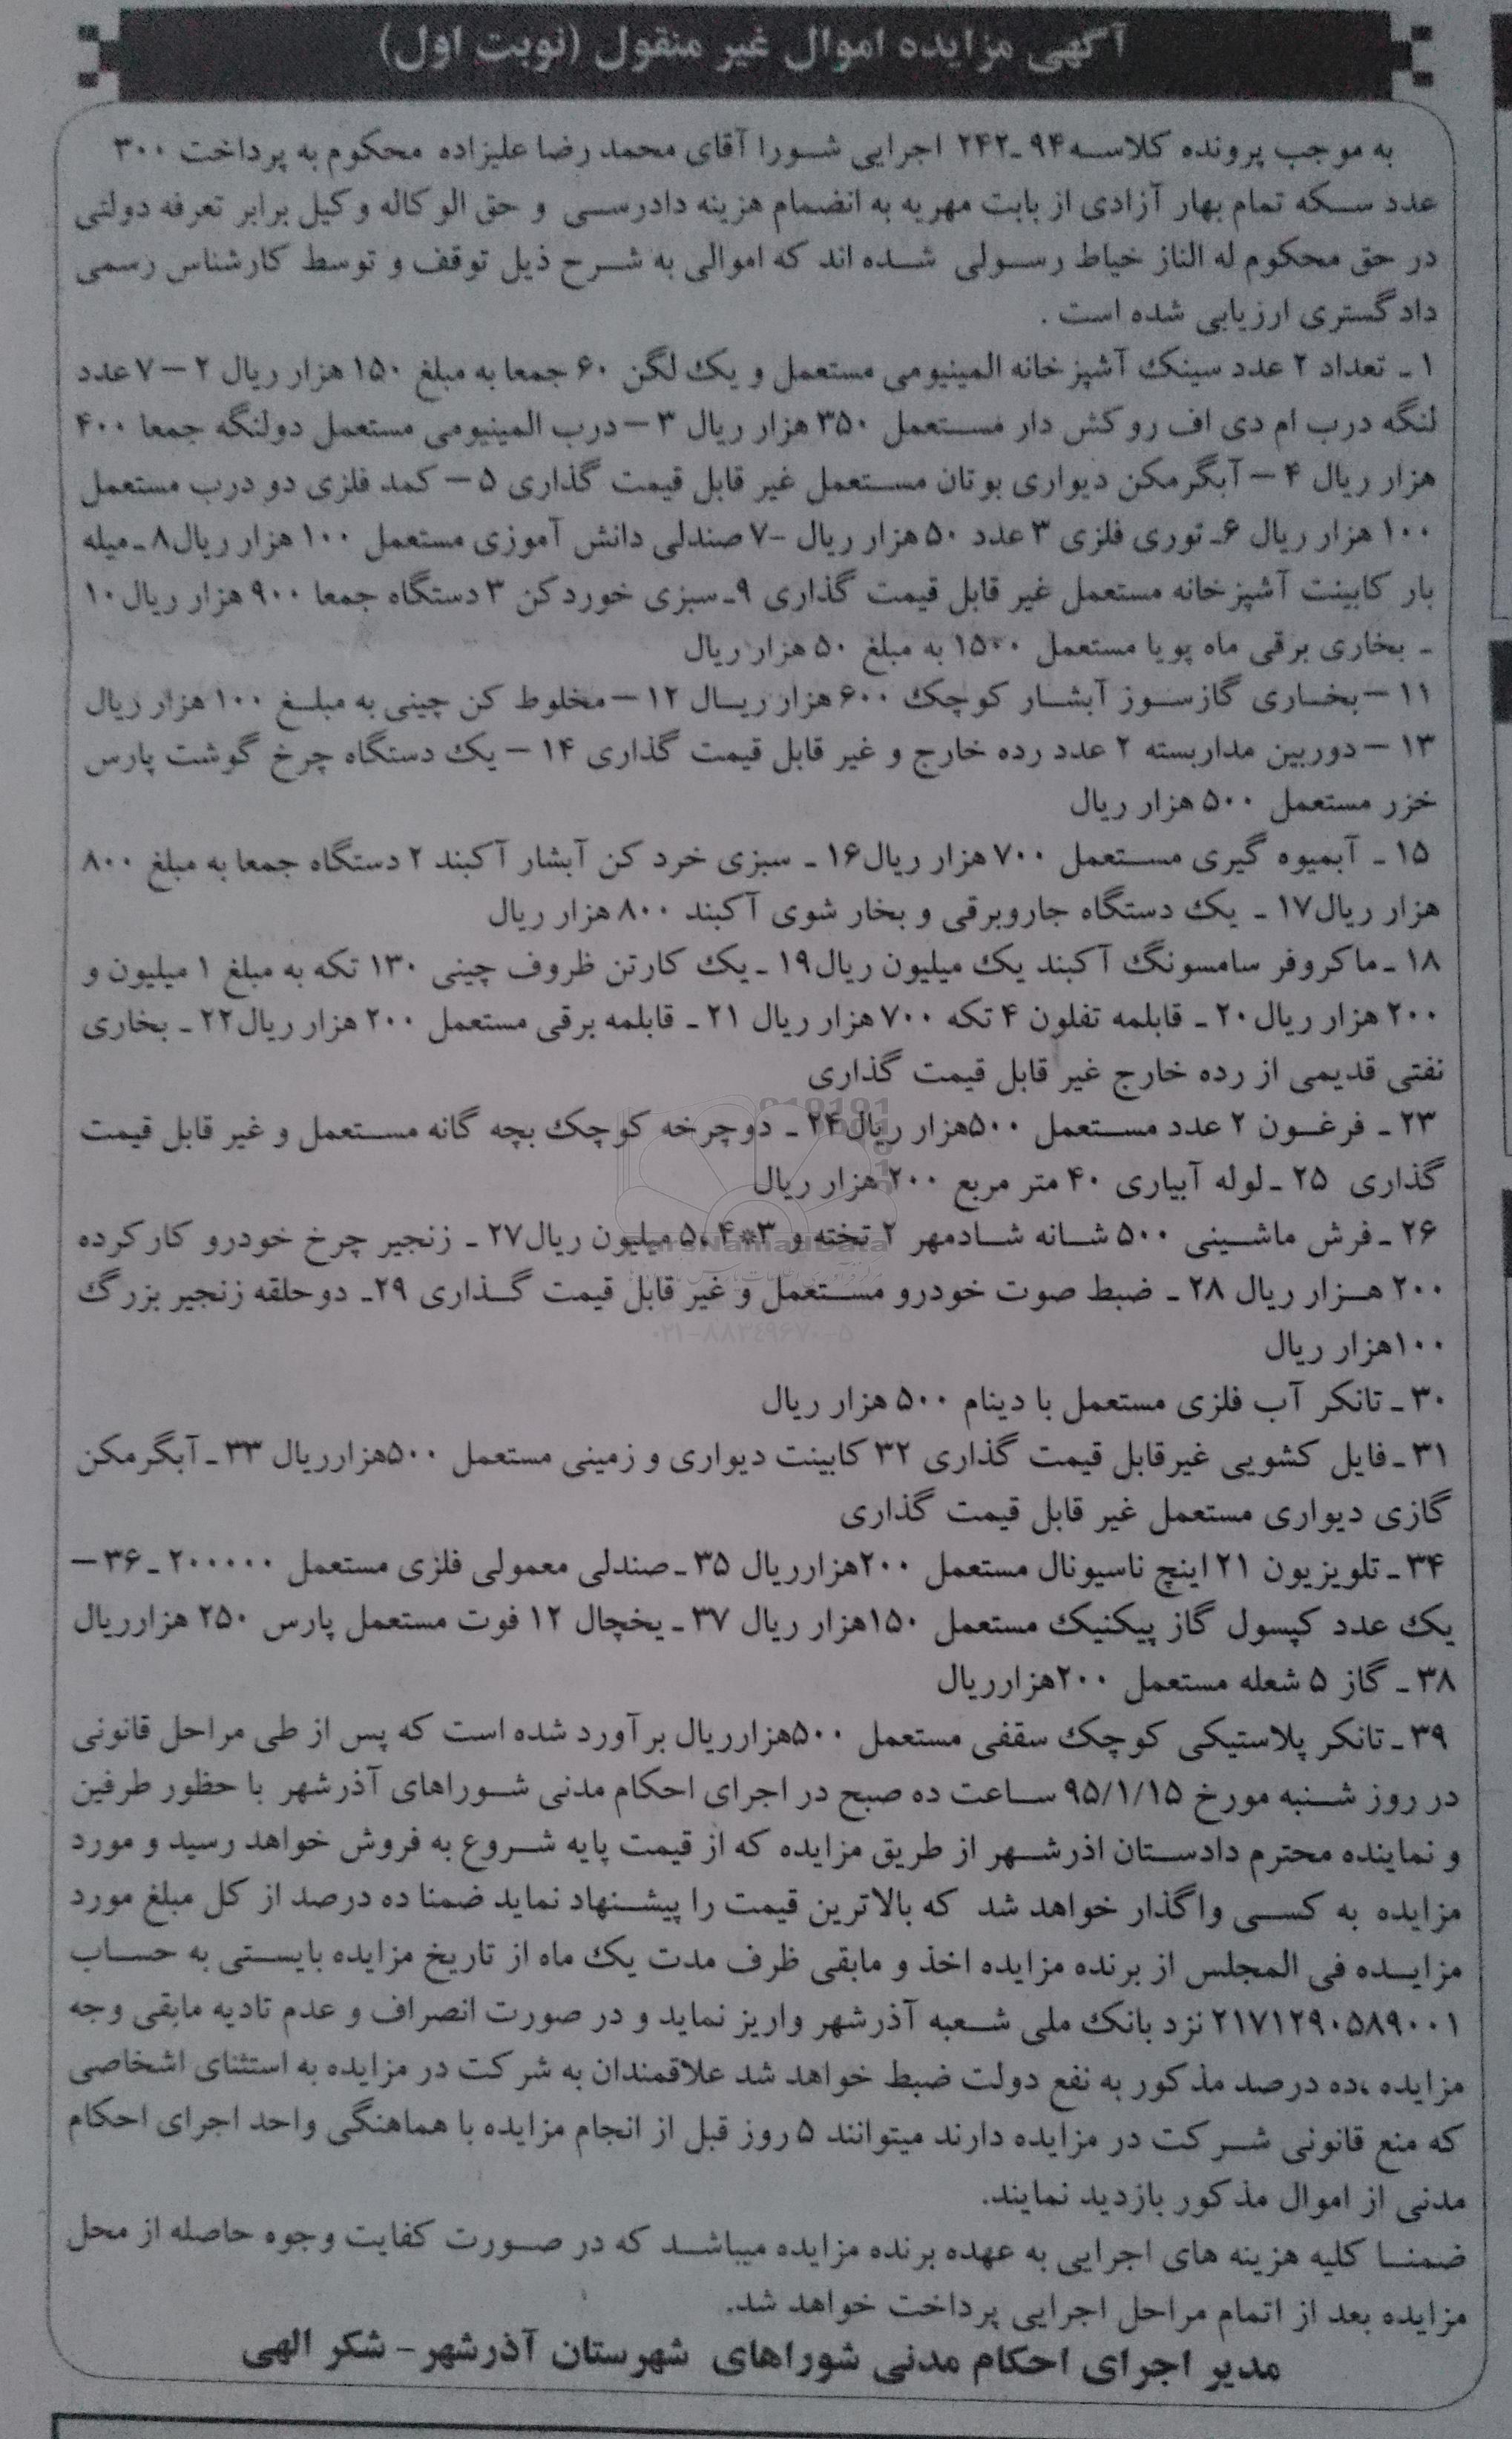 آگهی مزایده اموال غیر منقول (نوبت اول)
به موجب پرونده کلاسه۹۴ـ۲۴۲ اجرایی شورا آقای محمد رضا علیزاده محکوم به پرداخت ۳۰۰
عدد سکه تمام بهار آزادی از بابت مهریه به انضمام هزینه دادرسی و حق الوکاله وکیل برابر تعرفه دولتی
در حق محکوم له الناز خیاط رسولی شده اند که اموالی به شرح ذیل توقف و توسط کارشناس رسمی
دادگستری ارزیابی شده است .
۱ ـ تعداد ۲ عدد سینک آشپزخانه المینیومی مستعمل و یک لگن ۶۰ جمعا به مبلغ ۱۵۰ هزار ریال ۲ – ۷ عدد
لنگه درب ام دی اف روکش دار مستعمل ۳۵۰ هزار ریال ۳ – درب المینیومی مستعمل دولنگه جمعا ۴۰۰
هزار ریال ۴ – آبگرمکن دیواری بوتان مستعمل غیر قابل قیمت گذاری ۵ – کمد فلزی دو درب مستعمل
۱۰۰ هزار ریال ۶ـ توری فلزی ۳ عدد ۵۰ هزار ریال -۷ صندلی دانش آموزی مستعمل ۱۰۰ هزار ریال۸ ـ میله
بار کابینت آشپزخانه مستعمل غیر قابل قیمت گذاری ۹ـ سبزی خوردکن ۳ دستگاه جمعا ۹۰۰ هزار ریال۱۰
ـ بخاری برقی ماه پویا مستعمل ۱۵۰۰ به مبلغ ۵۰ هزار ریال
۱۱ –بخاری گازسوز آبشار کوچک ۶۰۰ هزار ریال ۱۲ – مخلوط کن چینی به مبلغ ۱۰۰ هزار ریال
۱۳ – دوربین مداربسته ۲ عدد رده خارج و غیر قابل قیمت گذاری ۱۴ – یک دستگاه چرخ گوشت پارس
خزر مستعمل ۵۰۰ هزار ریال
۱۵ ـ آبمیوه گیری مستعمل ۷۰۰ هزار ریال۱۶ ـ سبزی خرد کن آبشار آکبند ۲ دستگاه جمعا به مبلغ ۸۰۰
هزار ریال۱۷ ـ یک دستگاه جاروبرقی و بخار شوی آکبند ۸۰۰ هزار ریال
۱۸ ـ ماکروفر سامسونگ آکبند یک میلیون ریال۱۹ ـ یک کارتن ظروف چینی ۱۳۰ تکه به مبلغ ۱ میلیون و
۲۰۰ هزار ریال۲۰ ـ قابلمه تفلون ۴ تکه ۷۰۰ هزار ریال ۲۱ ـ قابلمه برقی مستعمل ۲۰۰ هزار ریال۲۲ ـ بخاری
نفتی قدیمی از رده خارج غیر قابل قیمت گذاری
۲۳ ـ فرغون ۲ عدد مستعمل ۵۰۰هزار ریال۲۴ ـ دوچرخه کوچک بچه گانه مستعمل و غیر قابل قیمت
گذاری ۲۵ ـ لوله آبیاری ۴۰ متر مربع ۲۰۰ هزار ریال
۲۶ ـ فرش ماشینی ۵۰۰ شانه شادمهر ۲ تخته و ۳*۴ ،۵ میلیون ریال۲۷ ـ زنجیر چرخ خودرو کارکرده
۲۰۰ هزار ریال ۲۸ ـ ضبط صوت خودرو مستعمل و غیر قابل قیمت گذاری ۲۹ـ دوحلقه زنجیر بزرگ
۰۲۱-۸۸۳۴۹۶۷۰-۵
۱۰۰هزار ریال
۳۰ ـ تانکر آب فلزی مستعمل با دینام ۵۰۰ هزار ریال
۳۱ ـ فایل کشویی غیرقابل قیمت گذاری ۳۲ کابینت دیواری و زمینی مستعمل ۵۰۰هزارریال ۳۳ ـ آبگرمکن
گازی دیواری مستعمل غیر قابل قیمت گذاری
۳۴ ـ تلویزیون ۲۱ اینچ ناسیونال مستعمل ۲۰۰هزارریال ۳۵ ـ صندلی معمولی فلزی مستعمل ۲۰۰۰۰۰ ـ ۳۶ –
یک عدد کپسول گاز پیکنیک مستعمل ۱۵۰هزار ریال ۳۷ ـ یخچال ۱۲ فوت مستعمل پارس ۲۵۰ هزارریال
۳۸ ـ گاز ۵ شعله مستعمل ۲۰۰هزارریال
۳۹ ـ تانکر پلاستیکی کوچک سقفی مستعمل ۵۰۰هزارریال برآورد شده است که پس از طی مراحل قانونی
در روز شنبه مورخ ۹۵/۱/۱۵ ساعت ده صبح در اجرای احکام مدنی شوراهای آذرشهر با حظور طرفین
و نماینده محترم دادستان اذرشهر از طریق مزایده که از قیمت پایه شروع به فروش خواهد رسید و مورد
مزایده به کسی واگذار خواهد شد که بالاترین قیمت را پیشنهاد نماید ضمنا ده درصد از کل مبلغ مورد
مزایده فی المجلس از برنده مزایده اخذ و مابقی ظرف مدت یک ماه از تاریخ مزایده بایستی به حساب
۲۱۷۱۲۹۰۵۸۹۰۰۱ نزد بانک ملی شعبه آذرشهر واریز نماید و در صورت انصراف و عدم تادیه مابقی وجه
مزایده ،ده درصد مذکور به نفع دولت ضبط خواهد شد علاقمندان به شرکت در مزایده به استثنای اشخاصی
که منع قانونی شرکت در مزایده دارند میتوانند ۵ روز قبل از انجام مزایده با هماهنگی واحد اجرای احکام
مدنی از اموال مذکور بازدید نمایند.
ضمنا کلیه هزینه های اجرایی به عهده برنده مزایده میباشد که در صورت کفایت وجوه حاصله از محل
مزایده بعد از اتمام مراحل اجرایی پرداخت خواهد شد.
مدیر اجرای احکام مدنی شوراهای شهرستان آذرشهر – شکر الهی